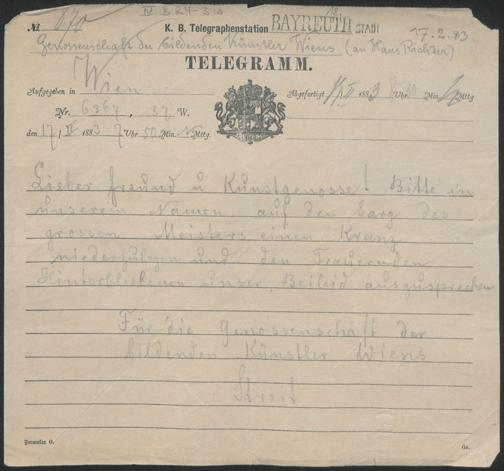 IV B 24-3
№ 870 K. B. Telegraphenstation BAYREUTH STADT 17.2.83
Genossenschaft der bildenden Künstler Wiens (an Hans Richter)
TELEGRAMM.
Aufgegeben in Wien Abgefertigt 17/II 1883 Uhr Min. Mttg
Nr. 6367, 37 W.
den 17/II 1883 7 Uhr 50 Min. N Mttg.
Lieber Freund u Kunstgenosse! Bitte in
unserem Namen auf den Sarg des
grossen Meisters einen Kranz
niederzulegen und den Trauernden
Hinterbliebenen unser Beileid auszusprechen
Für die Genossenschaft der
bildenden Künstler Wiens
Streit
Formular G. Ge.